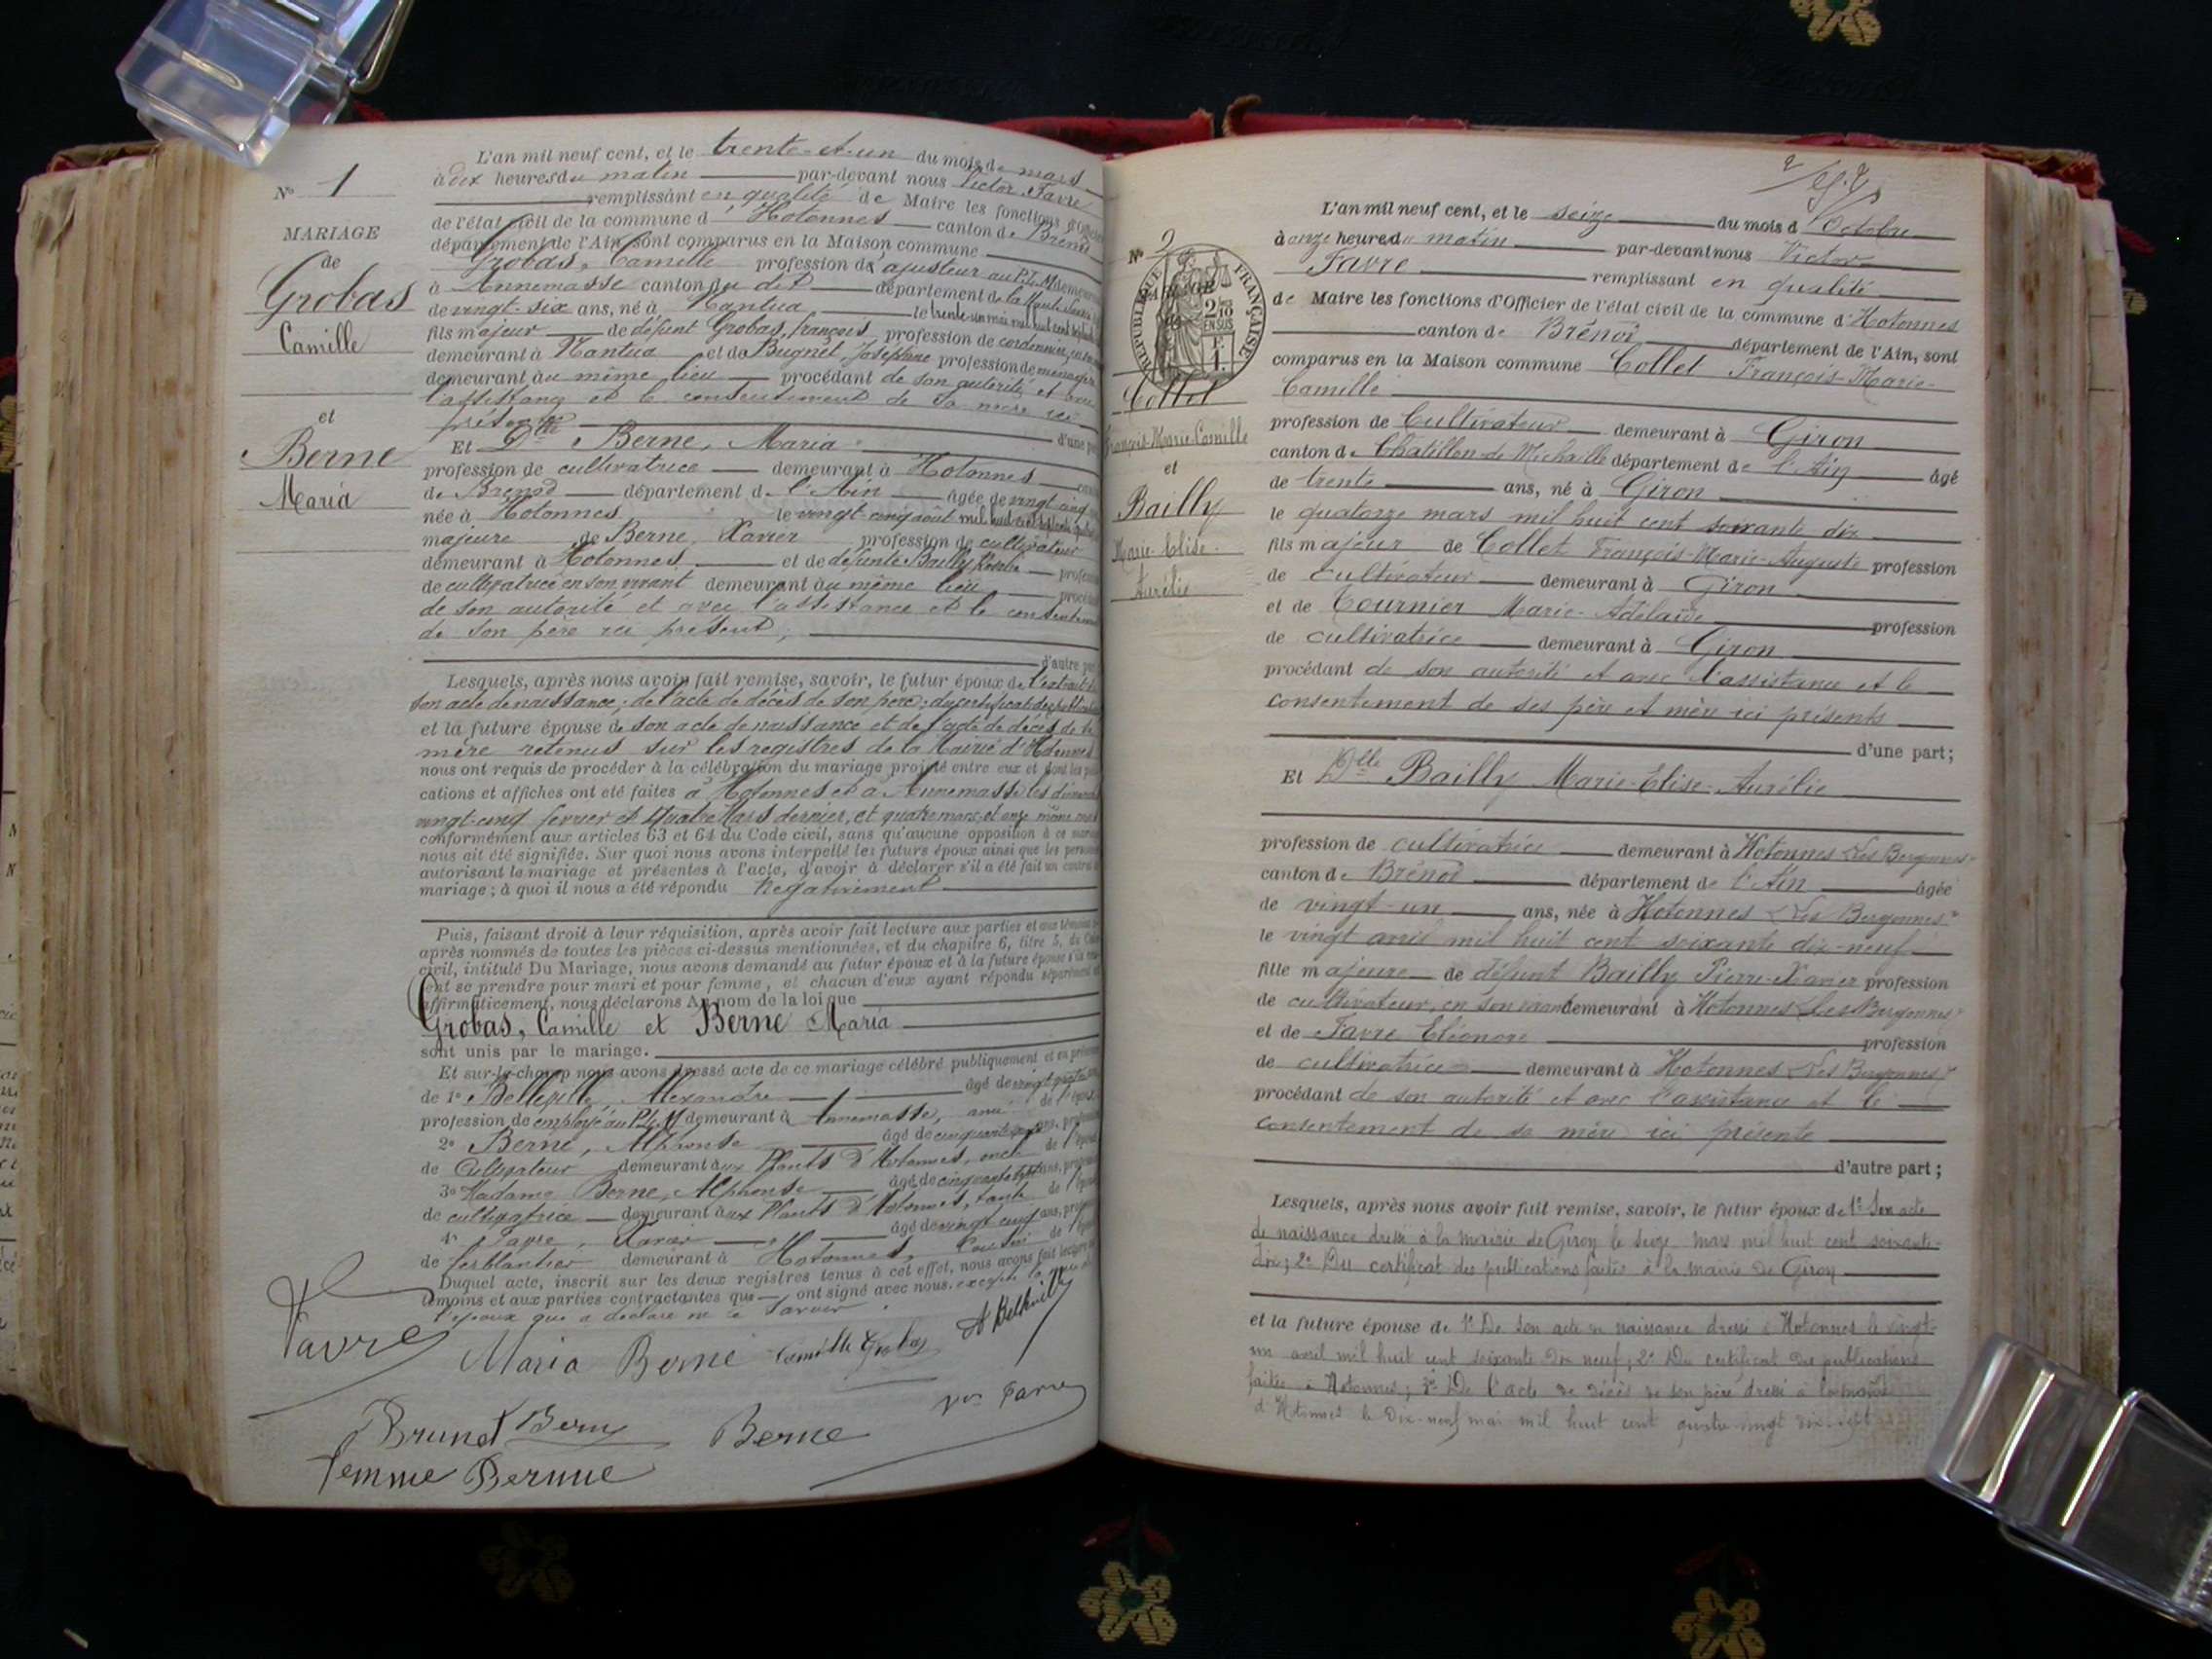 N° 1
MARIAGE
de
Grobas
Camille
et
Berne
Maria
L'an mil neuf cent, et le trente-et-un du mois de mars
à dix heures du matin par-devant nous Victor Favre
remplissant en qualité de Maire les fonctions d'Officier
de l'état civil de la commune d'Hotonnes canton de Brénod
département de l'Ain, sont comparus en la Maison commune
Grobas, Camille profession d'ajusteur au P.L.M.
à Annemasse canton du dit département de la Haute Savoie
de vingt-six ans, né à Nantua le trente-un mai mil huit cent
fils majeur de défunt Grobas, françois profession de cordonnier
demeurant à Nantua et de Bugnet Joséphine profession de ménagère
demeurant au même lieu procédant de son autorité et avec
l'assistance et le consentement de sa mère ici
présente
d'une part
Et Dlle Berne, Maria
profession de cultivatrice demeurant à Hotonnes
de Brénod département de l'Ain âgée de vingt cinq
née à Hotonnes le vingt-cinq août mil huit cent soixante quatorze
majeure de Berne, Xavier profession de cultivateur
demeurant à Hotonnes et de défunte Bailly Rosalie
de cultivatrice en son vivant demeurant au même lieu
de son autorité et avec l'assistance et le consentement
de son père ici présent;
d'autre part
Lesquels, après nous avoir fait remise, savoir, le futur époux de l'extrait de
son acte de naissance; de l'acte de décès de son père; du certificat des publications
et la future épouse de son acte de naissance et de l'acte de décès de sa
mère retenus sur les registres de la Mairie d'Hotonnes
nous ont requis de procéder à la célébration du mariage projeté entre eux et dont les publi
cations et affiches ont été faites à Hotonnes et à Annemasse les dimanches
vingt-cinq février et quatre Mars dernier, et quatre mars et onze même mois
conformément aux articles 63 et 64 du Code civil, sans qu'aucune opposition à ce mariage
nous ait été signifiée. Sur quoi nous avons interpellé les futurs époux ainsi que les personnes
autorisant le mariage et présentes à l'acte, d'avoir à déclarer s'il a été fait un contrat de
mariage; à quoi il nous a été répondu Négativement
Puis, faisant droit à leur réquisition, après avoir fait lecture aux parties et aux témoins
après nommés de toutes les pièces ci-dessus mentionnées, et du chapitre 6, titre 5, du Code
civil, intitulé Du Mariage, nous avons demandé au futur époux et à la future épouse s'ils
ent se prendre pour mari et pour femme, et chacun d'eux ayant répondu séparément et
affirmativement, nous déclarons Au nom de la loi que
Grobas, Camille et Berne Maria
sont unis par le mariage.
Et sur-le-champ nous avons dressé acte de ce mariage célébré publiquement et en présence
de 1° Belleville, Alexandre âgé de vingt quatre
profession de employé au P.L.M demeurant à Annemasse, ami de l'époux
2° Berne, Alphonse âgé de cinquante
de Cultivateur demeurant aux Plants d'Hotonnes, oncle de l'épouse
3° Madame Berne, Alphonse âgé de cinquante
de cultivatrice demeurant aux Plants d'Hotonnes, tante de l'épouse
4° Favre, Xavier âgé de vingt cinq ans,
de ferblantier demeurant à Hotonnes, Cousin de l'épouse
Duquel acte, inscrit sur les deux registres tenus à cet effet, nous avons fait lecture aux
témoins et aux parties contractantes que ont signé avec nous, excepté la mère de
l'époux qui a déclaré ne le savoir.
Favre
Maria Berne Camille Grobas A Belleville
Brunet Berne Berne Vor Favre
femme Bernne
N° 2
RÉPUBLIQUE FRANÇAISE
MARIAGE
2/10
EN SUS
F.
1.
Collet
François-Marie-Camille
et
Bailly
Marie-Elise-
Aurélie
L'an mil neuf cent, et le seize du mois d'Octobre
à onze heures du matin par-devant nous Victor
Favre remplissant en qualité
de Maire les fonctions d'Officier de l'état civil de la commune d'Hotonnes
canton de Brénod département de l'Ain, sont
comparus en la Maison commune Collet François-Marie-
Camille
profession de Cultivateur demeurant à Giron
canton de Châtillon-de-Michaille département de l'Ain âgé
de trente ans, né à Giron
le quatorze mars mil huit cent soixante dix
fils majeur de Collet François-Marie-Auguste profession
de cultivateur demeurant à Giron
et de Tournier Marie-Adélaïde profession
de cultivatrice demeurant à Giron
procédant de son autorité et avec l'assistance et le
consentement de ses père et mère ici présents
d'une part;
Et Dlle Bailly Marie-Elise-Aurélie
profession de cultivatrice demeurant à Hotonnes "Les Bergonnes"
canton de Brénod département de l'Ain âgée
de vingt-un ans, née à Hotonnes "Les Bergonnes"
le vingt avril mil huit cent soixante dix-neuf
fille majeure de défunt Bailly Pierre-Xavier profession
de cultivateur, en son vivant demeurant à Hotonnes "Les Bergonnes"
et de Favre Eléonore profession
de cultivatrice demeurant à Hotonnes "Les Bergonnes"
procédant de son autorité et avec l'assistance et le
consentement de sa mère ici présente
d'autre part;
Lesquels, après nous avoir fait remise, savoir, le futur époux de 1° Son acte
de naissance dressé à la mairie de Giron le seize mars mil huit cent soixante-
dix; 2° Du certificat des publications faites à la mairie de Giron
et la future épouse de 1° De son acte de naissance dressé à Hotonnes le vingt-
un avril mil huit cent soixante dix neuf; 2° Du certificat des publications
faites à Hotonnes; 3° De l'acte de décès de son père dressé à la mairie
d'Hotonnes le dix-neuf mai mil huit cent quatre-vingt dix-sept